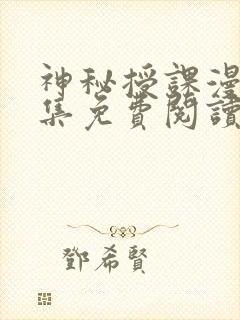 神秘授課漫
集免費閱讀
鄧希賢